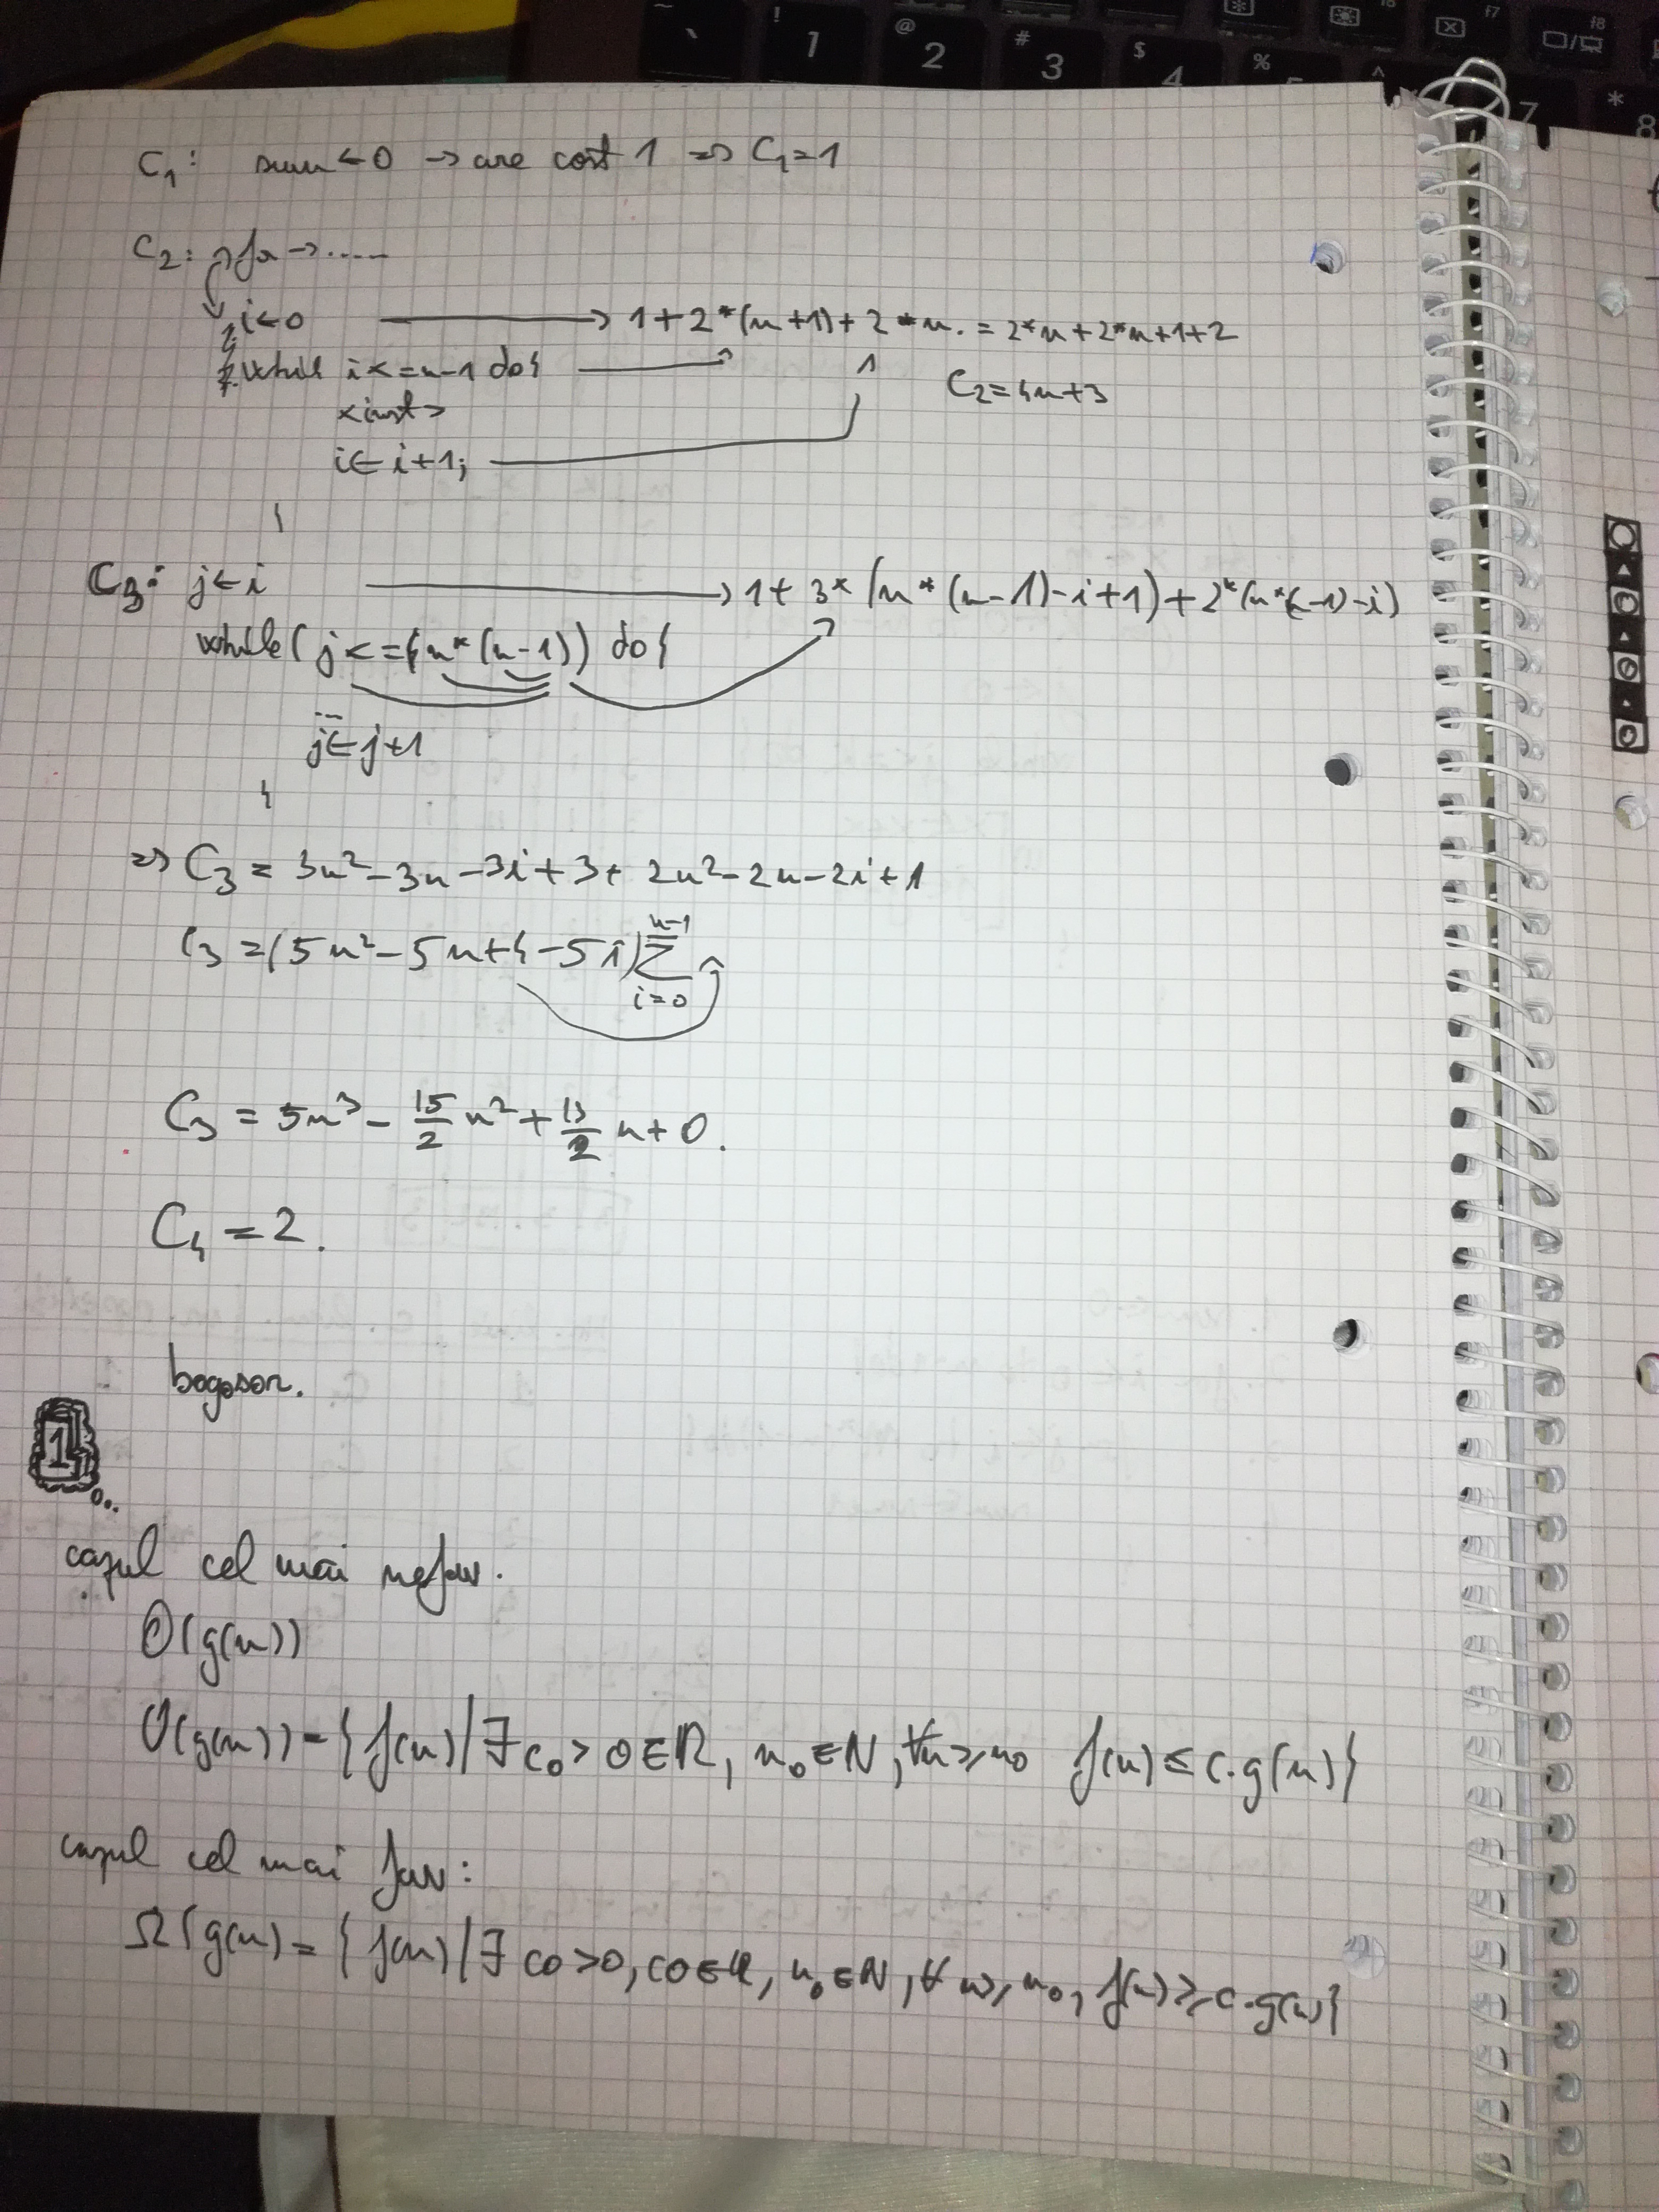 C₁: sum ← 0 → are cost 1 => C₁ = 1
C₂: for → ......
i ← 0 → 1 + 2*(n+1) + 2*n. = 2*n + 2*n + 1 + 2
while i <= n-1 do {
C₂ = 4n+3
<inst>
i ← i+1;
}
C₃: j ← i → 1 + 3*(n*(n-1)-i+1) + 2*(n*(n-1)-i)
while (j <= (n*(n-1)) do {
...
j ← j+1
}
=> C₃ = 3n² - 3n - 3i + 3 + 2n² - 2n - 2i + 1
C₃ = (5n² - 5n + 4 - 5i) Σ n-1 i=0
C₃ = 5n³ - 15/2 n² + 13/2 n + 0.
C₄ = 2.
bogoson.
1
cazul cel mai nefav.
O(g(n))
O(g(n)) = { f(n) | ∃ c₀ > 0 ∈ R, n₀ ∈ N, ∀n ≥ n₀ f(n) ≤ c·g(n) }
cazul cel mai fav:
Ω(g(n) = { f(n) | ∃ c0 > 0, c0 ∈ R, n₀ ∈ N, ∀ n ≥ n₀, f(n) ≥ c·g(n) }
~ ` ! 1 @ 2 # 3 $ 4 % 5 ^ 7 * 8
f7 f8